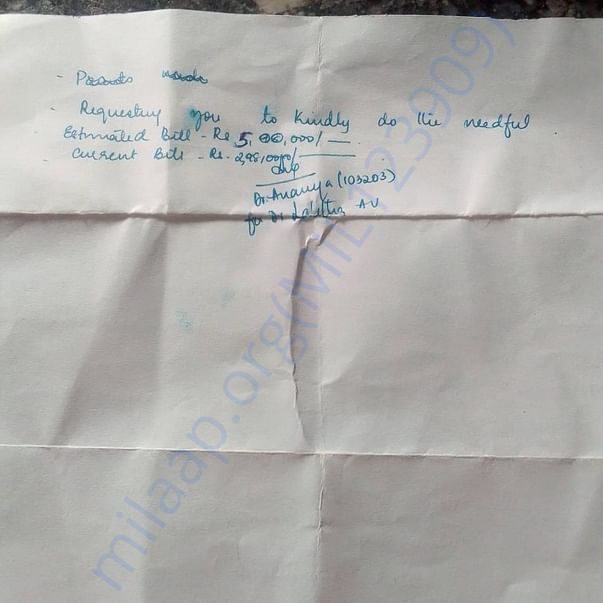 - Requesting you to kindly do the needful.
Estimated Bill - Rs 5,00,000/-
Current Bill - Rs. 2,98,000/-
Dr. Ananya (103203)
for Dr Lalitha AV
milaap.org(MIL123909)